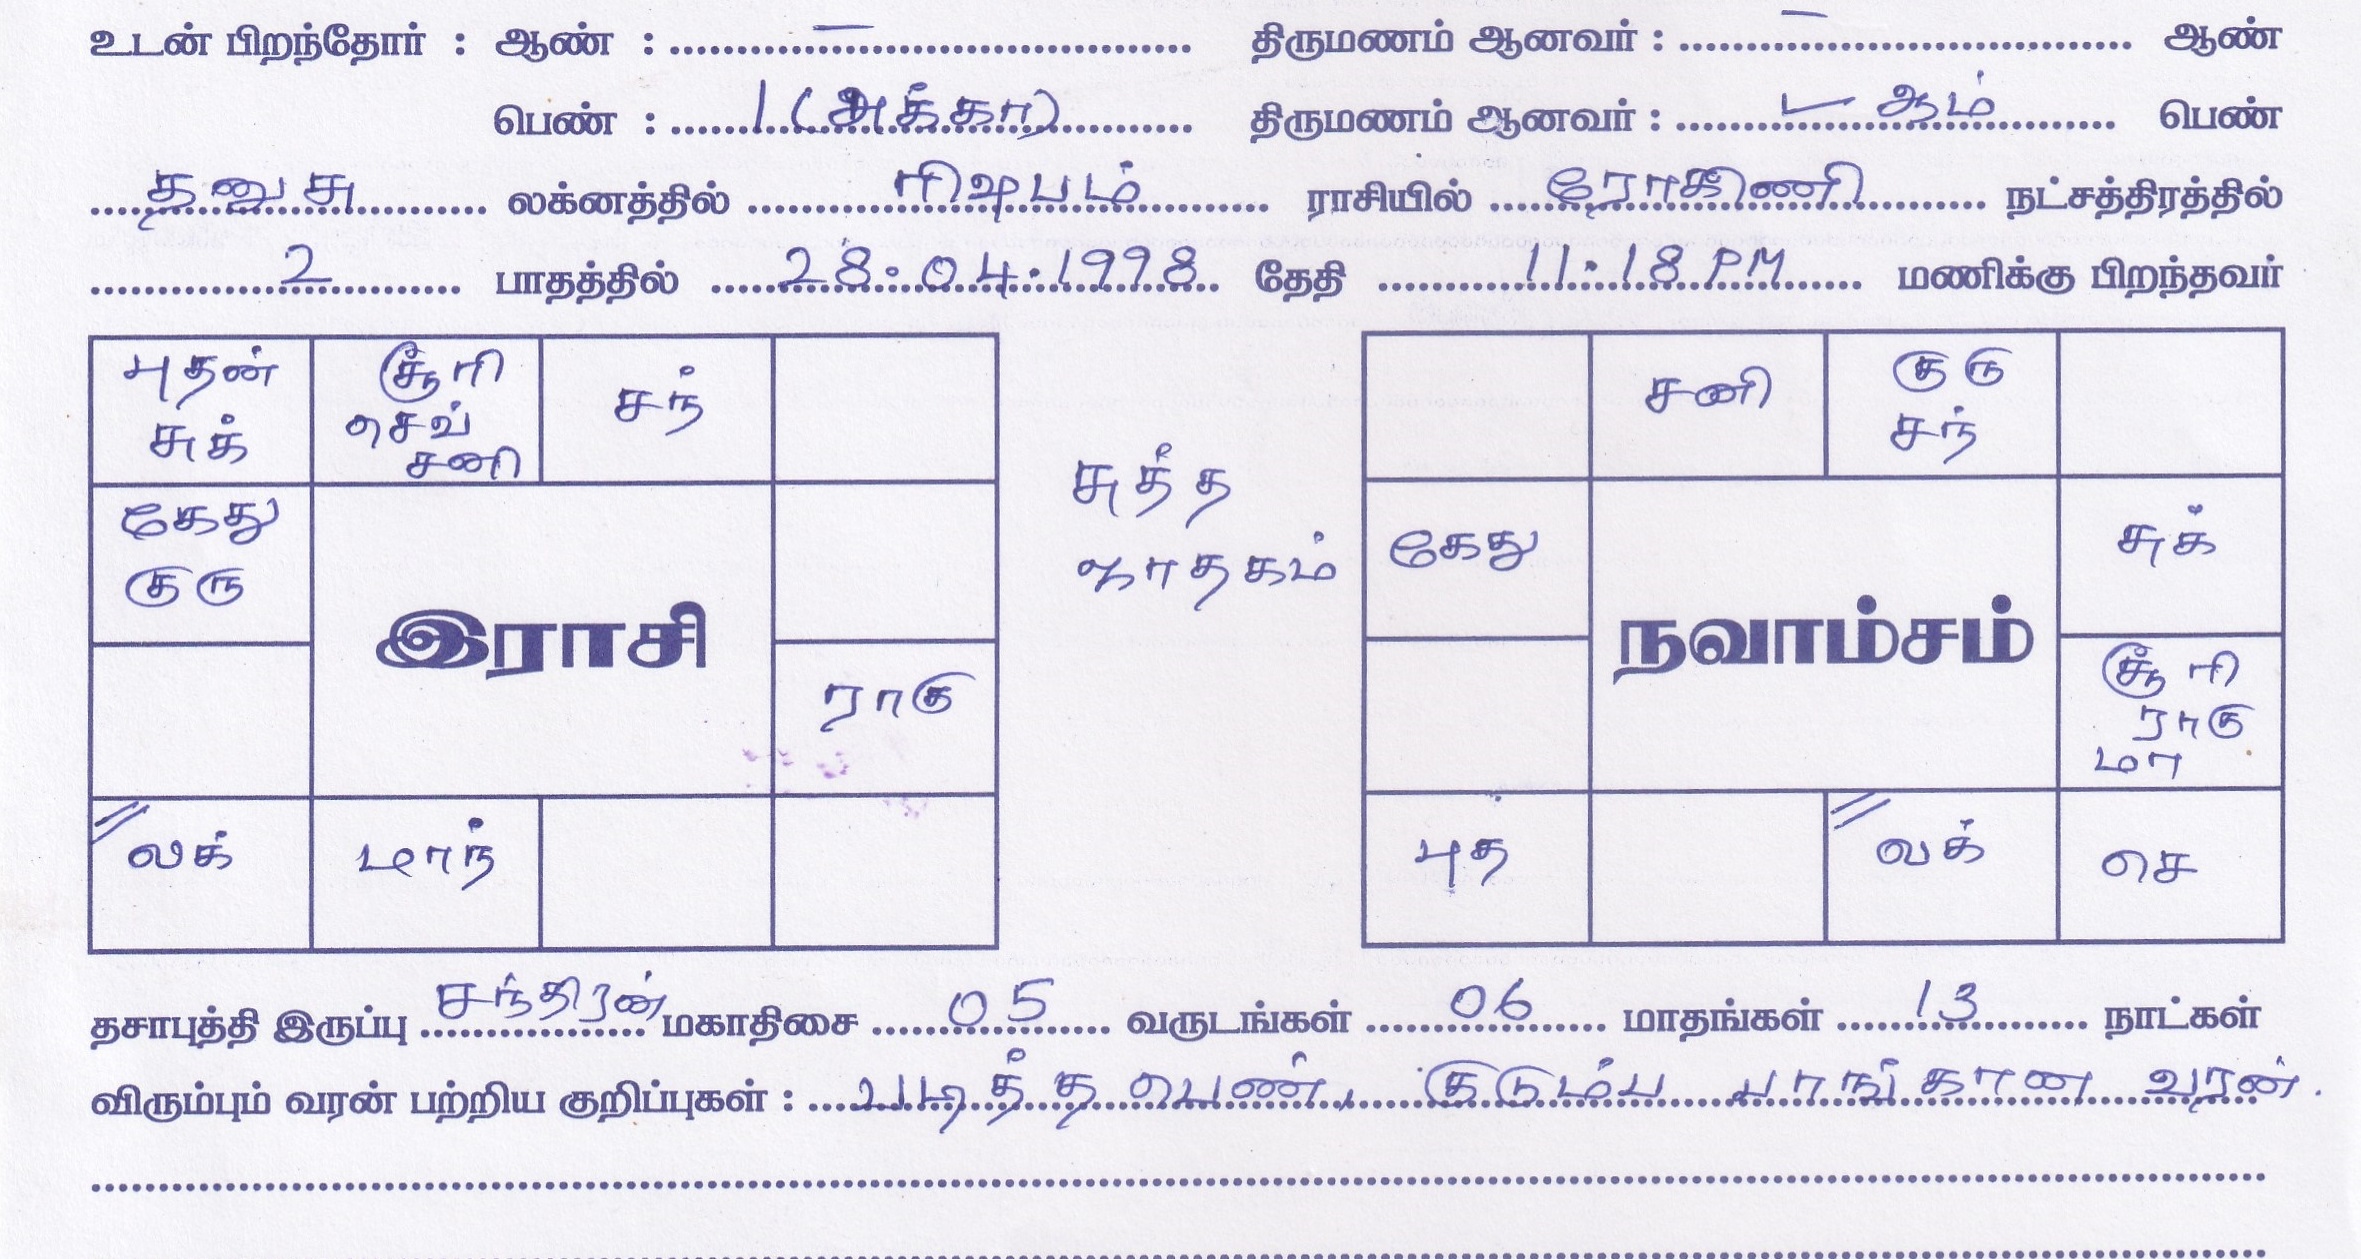 உடன் பிறந்தோர் : ஆண் : – திருமணம் ஆனவர் : – ஆண்
பெண் : 1 (அக்கா) திருமணம் ஆனவர் : ஆம் பெண்
தனுசு லக்னத்தில் ரிஷபம் ராசியில் ரோகிணி நட்சத்திரத்தில்
2 பாதத்தில் 28.04.1998 தேதி 11.18 PM மணிக்கு பிறந்தவர்
புதன்
சுக்
சூரி
செவ்
சனி
சந்
கேது
குரு
இராசி
ராகு
லக்
மாந்
சுத்த
ஜாதகம்
சனி
குரு
சந்
கேது
நவாம்சம்
சுக்
சூரி
ராகு
மா
புத
லக்
செ
தசாபுத்தி இருப்பு சந்திரன் மகாதிசை 05 வருடங்கள் 06 மாதங்கள் 13 நாட்கள்
விரும்பும் வரன் பற்றிய குறிப்புகள் : படித்த பெண், குடும்ப பாங்கான வரன்.